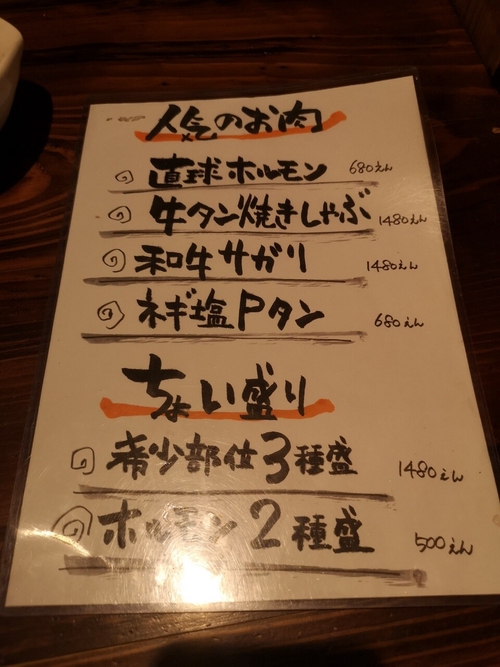 人気のお肉
直球ホルモン 680えん
牛タン焼きしゃぶ 1480えん
和牛サガリ 1480えん
ネギ塩Pタン 680えん
ちょい盛り
希少部位3種盛 1480えん
ホルモン2種盛 500えん